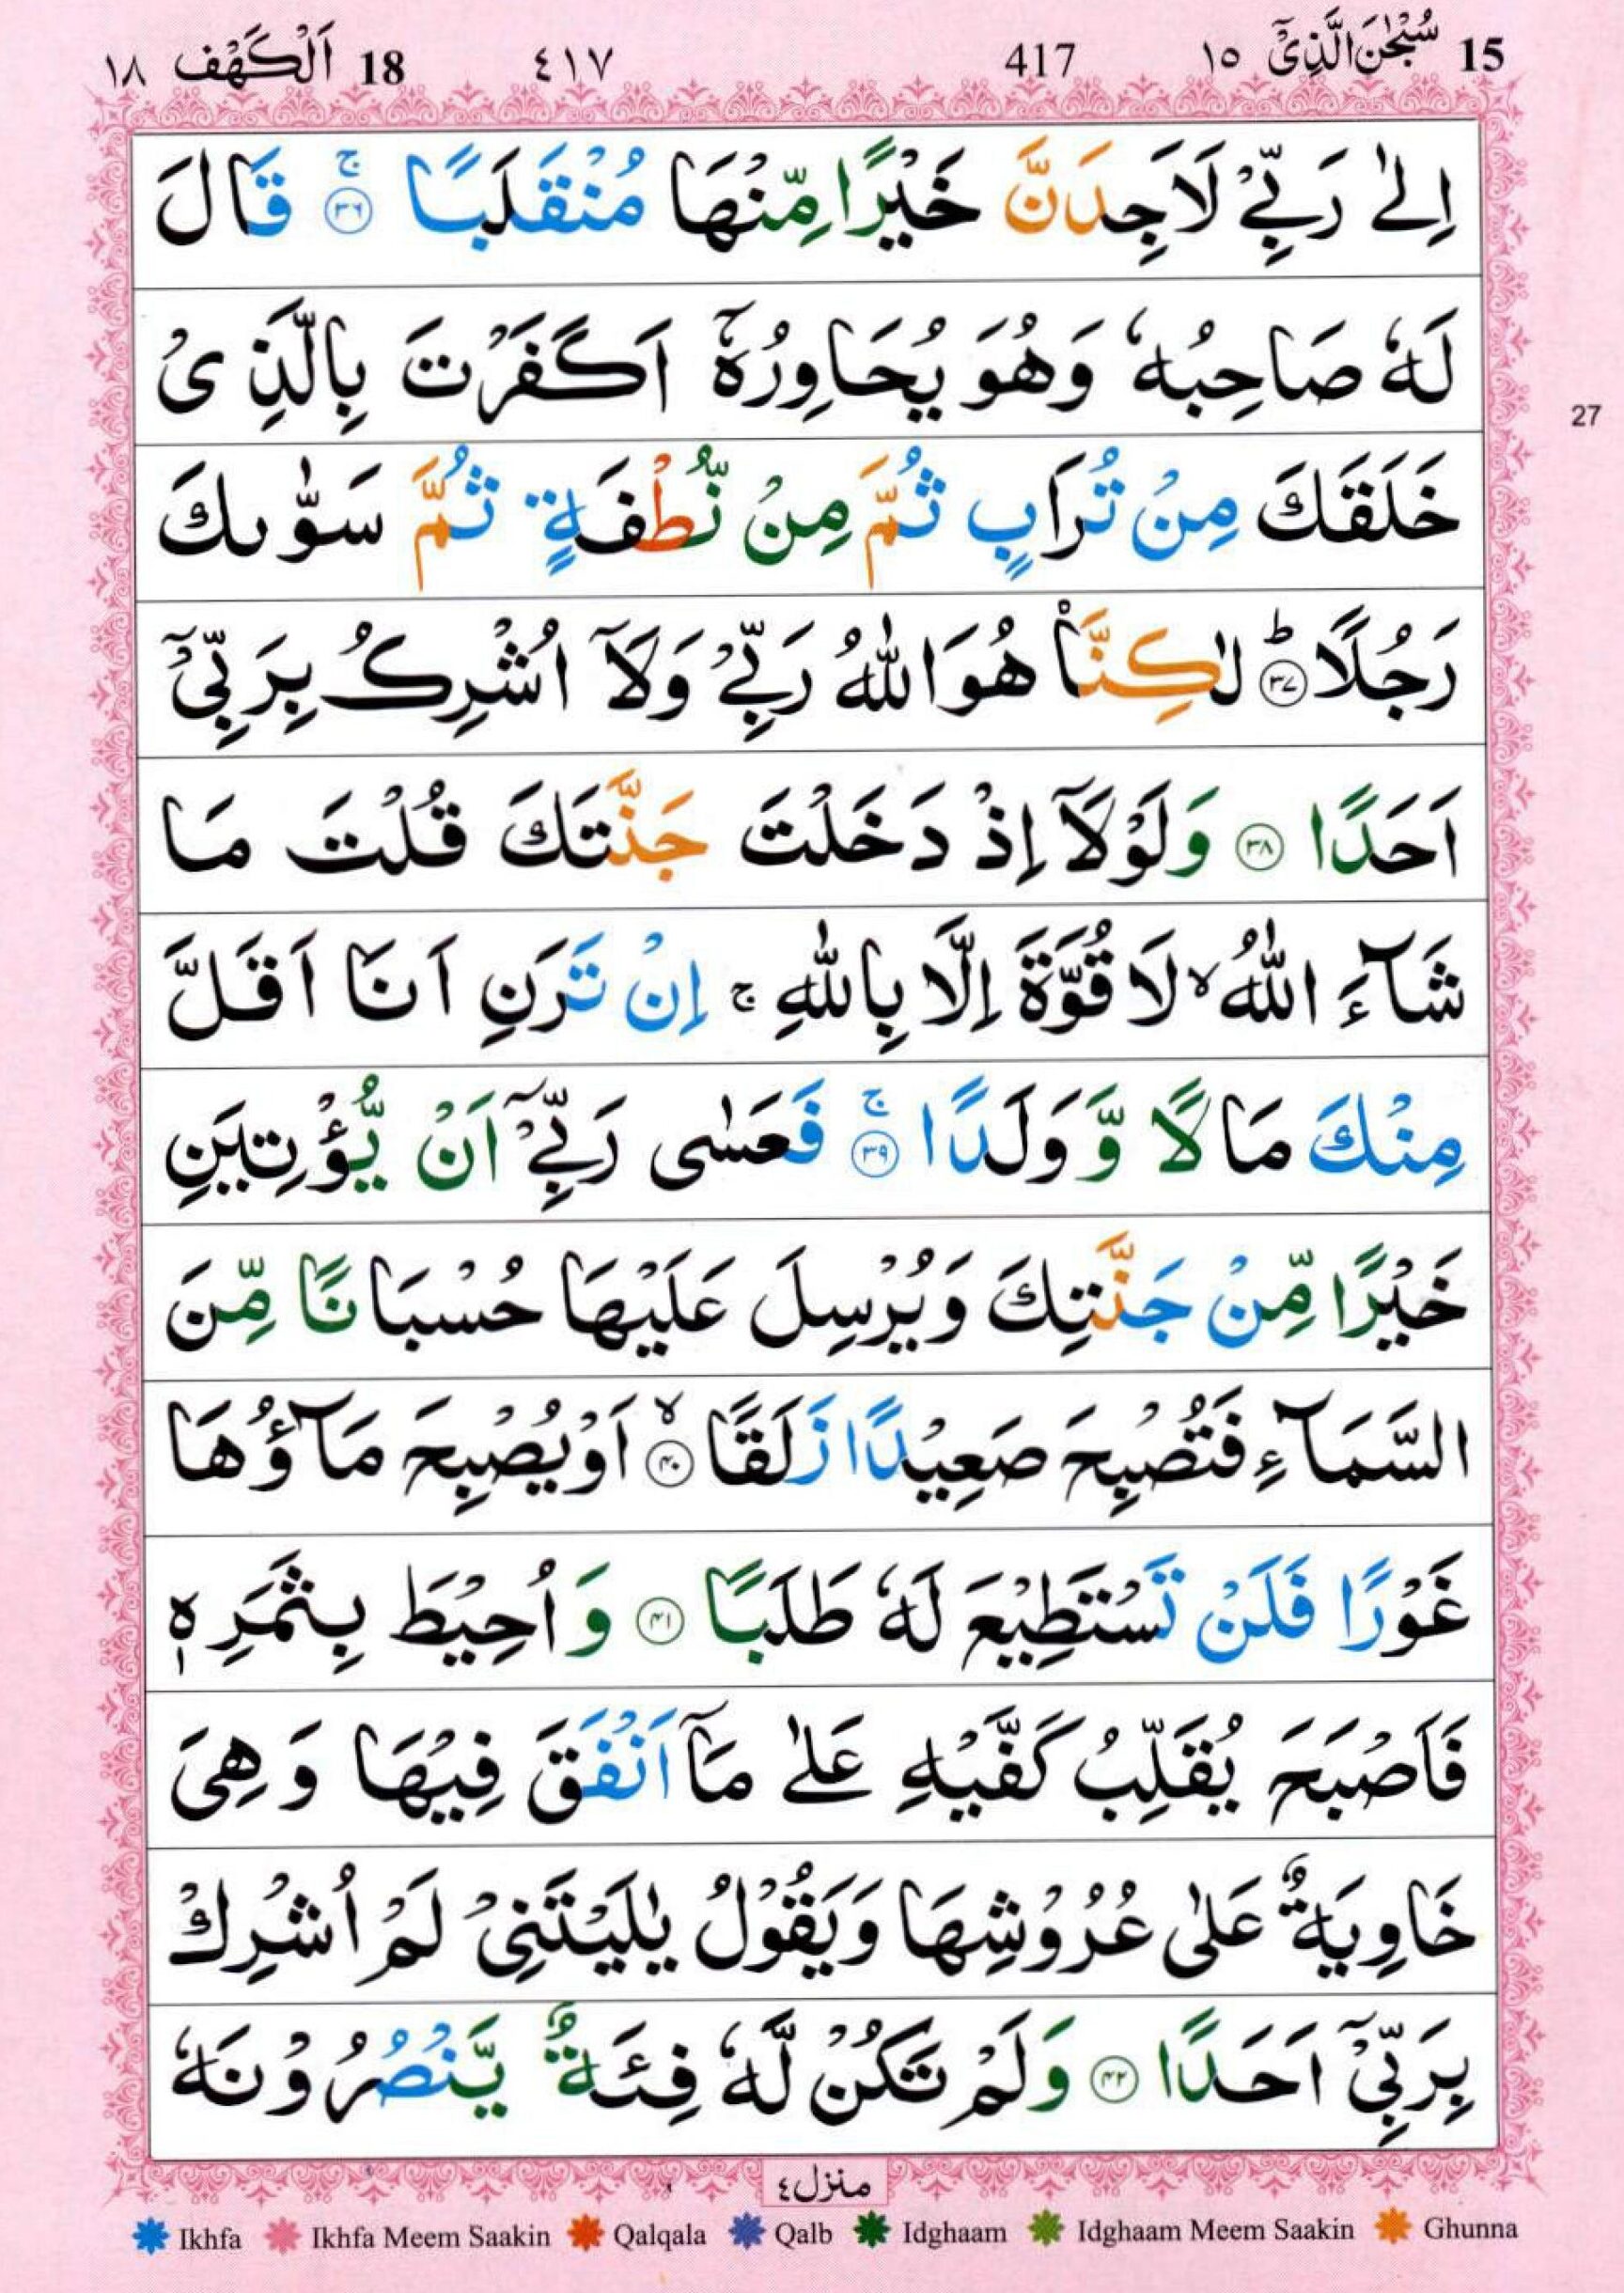 15 سُبْحٰنَ الَّذِیْۤ ١٥ 417 ٤١٧ 18 اَلْكَهْف ١٨
اِلٰى رَبِّیْ لَاَجِدَنَّ خَیْرًا مِّنْهَا مُنْقَلَبًا ۚ﴿۳۶﴾ قَالَ
لَهٗ صَاحِبُهٗ وَهُوَ یُحَاوِرُهٗۤ اَكَفَرْتَ بِالَّذِیْ
خَلَقَكَ مِنْ تُرَابٍ ثُمَّ مِنْ نُّطْفَةٍ ثُمَّ سَوّٰىكَ
رَجُلًا ؕ﴿۳۷﴾ لٰكِنَّا۠ هُوَ اللّٰهُ رَبِّیْ وَلَاۤ اُشْرِكُ بِرَبِّیْۤ
اَحَدًا ﴿۳۸﴾ وَلَوْلَاۤ اِذْ دَخَلْتَ جَنَّتَكَ قُلْتَ مَا
شَآءَ اللّٰهُ ۙ لَا قُوَّةَ اِلَّا بِاللّٰهِ ۚ اِنْ تَرَنِ اَنَا اَقَلَّ
مِنْكَ مَالًا وَّ وَلَدًا ۚ﴿۳۹﴾ فَعَسٰى رَبِّیْۤ اَنْ یُّؤْتِیَنِ
خَیْرًا مِّنْ جَنَّتِكَ وَیُرْسِلَ عَلَیْهَا حُسْبَانًا مِّنَ
السَّمَآءِ فَتُصْبِحَ صَعِیْدًا زَلَقًا ۙ﴿۴۰﴾ اَوْ یُصْبِحَ مَآؤُهَا
غَوْرًا فَلَنْ تَسْتَطِیْعَ لَهٗ طَلَبًا ﴿۴۱﴾ وَ اُحِیْطَ بِثَمَرِهٖ
فَاَصْبَحَ یُقَلِّبُ كَفَّیْهِ عَلٰى مَاۤ اَنْفَقَ فِیْهَا وَ هِیَ
خَاوِیَةٌ عَلٰى عُرُوْشِهَا وَیَقُوْلُ یٰلَیْتَنِیْ لَمْ اُشْرِكْ
بِرَبِّیْۤ اَحَدًا ﴿۴۲﴾ وَلَمْ تَكُنْ لَّهٗ فِئَةٌ یَّنْصُرُوْنَهٗ
27
منزل ٤
Ikhfa Ikhfa Meem Saakin Qalqala Qalb Idghaam Idghaam Meem Saakin Ghunna